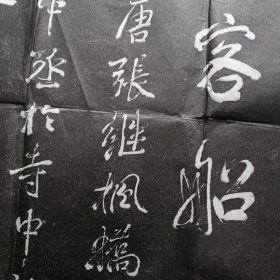 客船
唐張繼楓橋
中丞於寺中